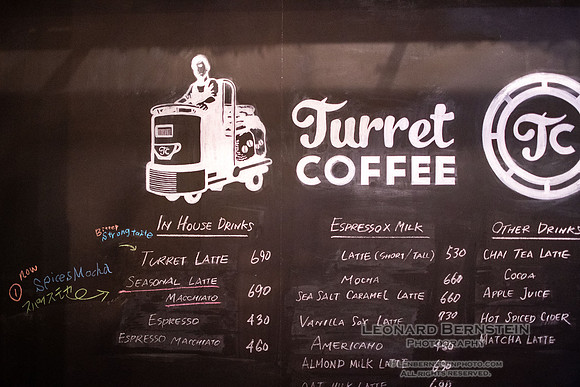 TC
Turret
COFFEE
TC
IN HOUSE DRINKS
Bitter
Strong taste
TURRET LATTE 690
① now
Spices Mocha
SEASONAL LATTE
MACCHIATO 690
ESPRESSO 430
ESPRESSO MACCHIATO 460
ESPRESSO X MILK
LATTE (SHORT/TALL) 530
MOCHA 660
SEA SALT CARAMEL LATTE 660
VANILLA SOY LATTE 730
AMERICANO
ALMOND MILK LATTE
OAT MILK LATTE
OTHER DRINKS
CHAI TEA LATTE
COCOA
APPLE JUICE
HOT SPICED CIDER
MATCHA LATTE
LEONARD BERNSTEIN
PHOTOGRAPHY
LENBERNSTEINPHOTO.COM
ALL RIGHTS RESERVED.